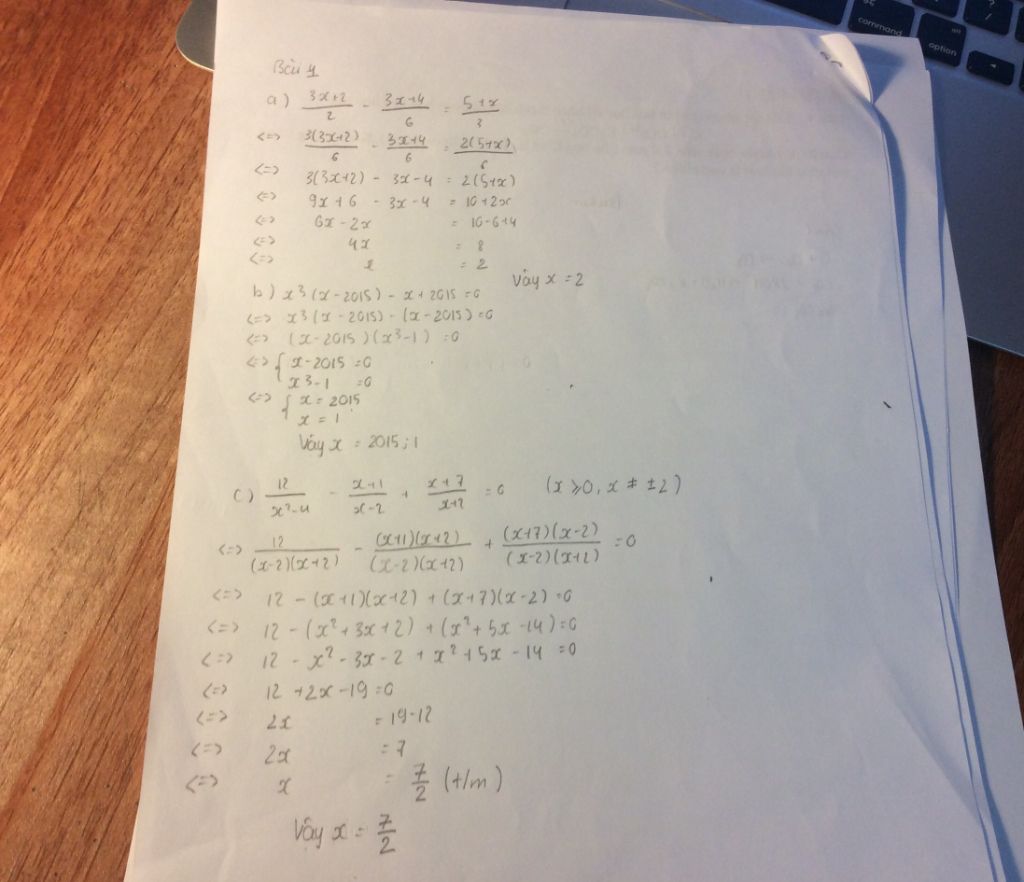 command
option
Bài 4
a) \frac{3x+2}{2} - \frac{3x+4}{6} = \frac{5+x}{3}
<=> \frac{3(3x+2)}{6} - \frac{3x+4}{6} = \frac{2(5+x)}{6}
<=> 3(3x+2) - 3x-4 = 2(5+x)
<=> 9x+6 - 3x-4 = 10+2x
<=> 6x-2x = 10-6+4
<=> 4x = 8
<=> x = 2
Vậy x = 2
b) x³(x-2015) - x+2015 = 0
<=> x³(x-2015) - (x-2015) = 0
<=> (x-2015)(x³-1) = 0
<=> { x-2015 = 0
x³-1 = 0
<=> { x = 2015
x = 1
Vậy x = 2015; 1
c) \frac{12}{x²-4} - \frac{x+1}{x-2} + \frac{x+7}{x+2} = 0 (x ⩾ 0, x ≠ ±2)
<=> \frac{12}{(x-2)(x+2)} - \frac{(x+1)(x+2)}{(x-2)(x+2)} + \frac{(x+7)(x-2)}{(x-2)(x+2)} = 0
<=> 12 - (x+1)(x+2) + (x+7)(x-2) = 0
<=> 12 - (x²+3x+2) + (x²+5x-14) = 0
<=> 12 - x² - 3x - 2 + x² + 5x - 14 = 0
<=> 12 + 2x - 19 = 0
<=> 2x = 19-12
<=> 2x = 7
<=> x = \frac{7}{2} (t/m)
Vậy x = \frac{7}{2}